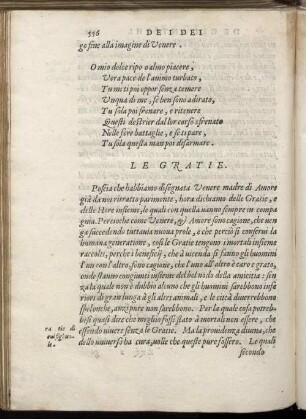 556 DE I DEI
go fine alla imagine di Venere.
O mio dolce riposo almo piacere,
Vera pace de l'animo turbato,
Tu mi ti poi oppor senza temere
Unqua di me, se ben sono adirato,
Tu sola poi frenare, e ritenere
Questi destrier dal lor corso sfrenato
Nelle fere battaglie, e se ti pare,
Tu sola questa man poi disarmare.
LE GRATIE.
Poscia che habbiamo disegnata Venere madre di Amore
già da noi ritratto parimente, hora dichamo delle Gratie, e
delle Hore insieme, le quali con quella vanno sempre in compa
gnia. Percioche come Venere, & Amore sono cagione, che ven
ga succedendo tuttavia nuova prole, e che perciò si conservi la
humana generatione, così le Gratie tengono i mortali insieme
raccolti, perche i beneficij, che à vicenda si fanno gli huomini
l'un con l'altro, sono cagione, che l'uno all'altro è caro e grato,
onde stanno congiunti insieme del bel nodo della amicitia: sen
za la quale non è dubbio alcuno che gli huomini sarebbono infe
riori di gran lunga à gli altri animali, e le città diverrebbono
spelonche, anzi pure non sarebbono. Per la qual cosa potreb
besi quasi dire che meglio fosse stato à mortali non essere, che
essendo vivere senza le Gratie. Ma la providenza divina, che
dello universo ha cura, volle che queste pure fossero. Le quali
secondo